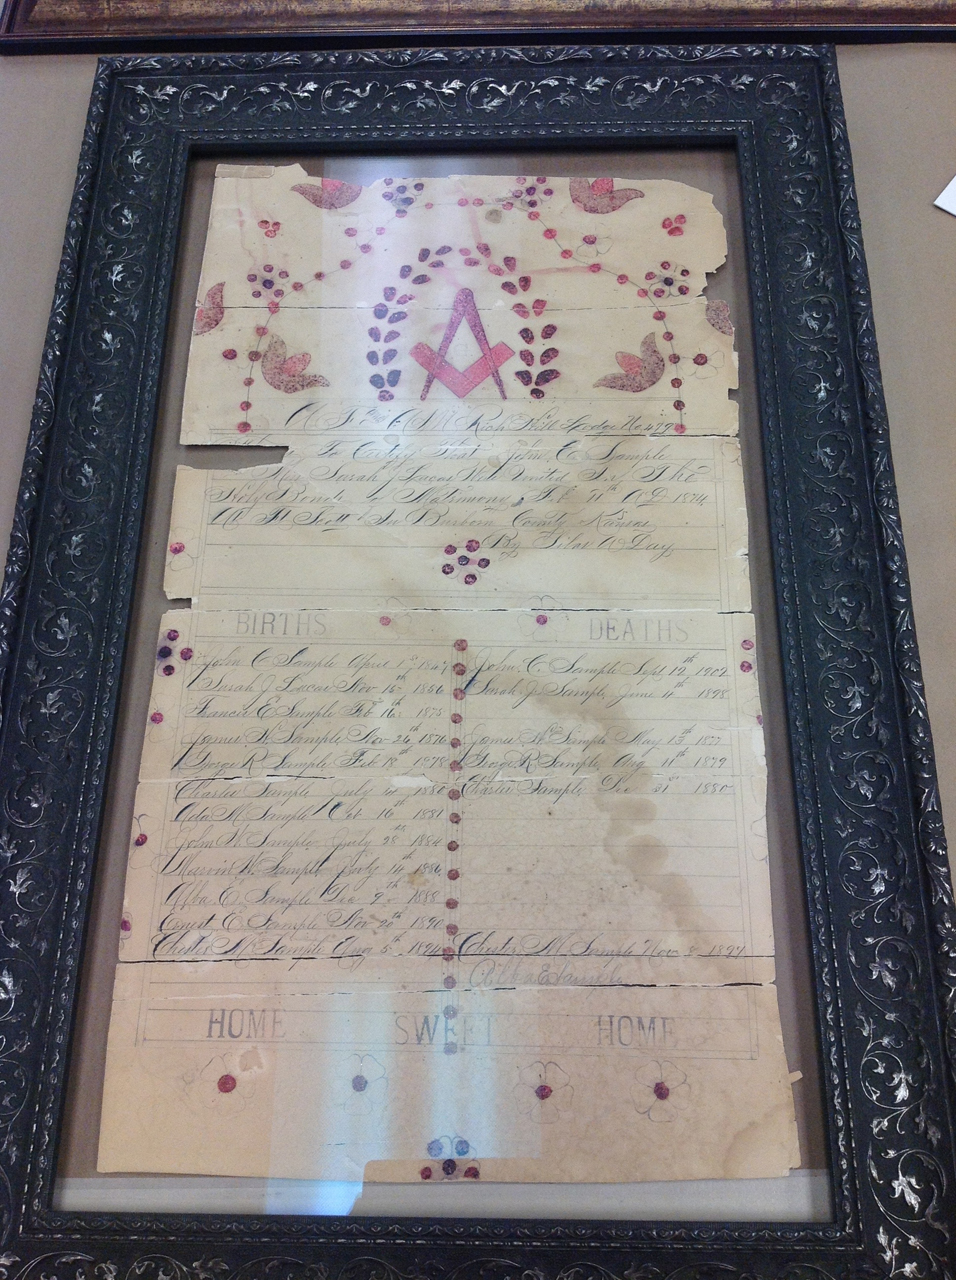 A F & A M Rich Hill Lodge No 479
To Certify That John C. Sample
Miss Sarah J Lucas Were United In The
Holy Bonds of Matrimony, Feb 11th A D 1874
At Ft Scott In Burborn County Kansas
By Silas A Day
BIRTHS DEATHS
John C Sample April 1st 1847 John C. Sample Sept 12th 1902
Sarah J. Lucas Nov 15th 1856 Sarah J. Sample June 4th 1898
Francis E Sample Feb 16th 1875
James W Sample Nov 24th 1876 James W Sample May 13th 1877
George R Sample Feb 18th 1878 George R Sample Aug 11th 1879
Charlie Sample July 4th 1880 Charlie Sample Dec 31st 1880
Ada M Sample Oct 16th 1881
John W Sample July 28th 1884
Marvin W Sample July 14th 1886
Alba E Sample Dec 9th 1888
Ernest E Sample Nov 20th 1890
Chester M Sample Aug 5th 1894 Chester M Sample Nov 8 1897
E Sample
HOME SWEET HOME